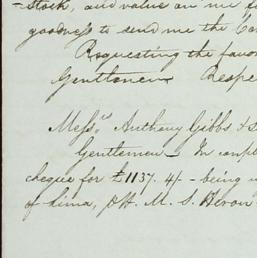 stock, and value on me f
goodness to send me the Co
Requesting the favo
Gentlemen Respe
Messrs Anthony Gibbs & S
Gentlemen - In compl
cheque for £1137. 4/- being
of Lima, M. S. Heron